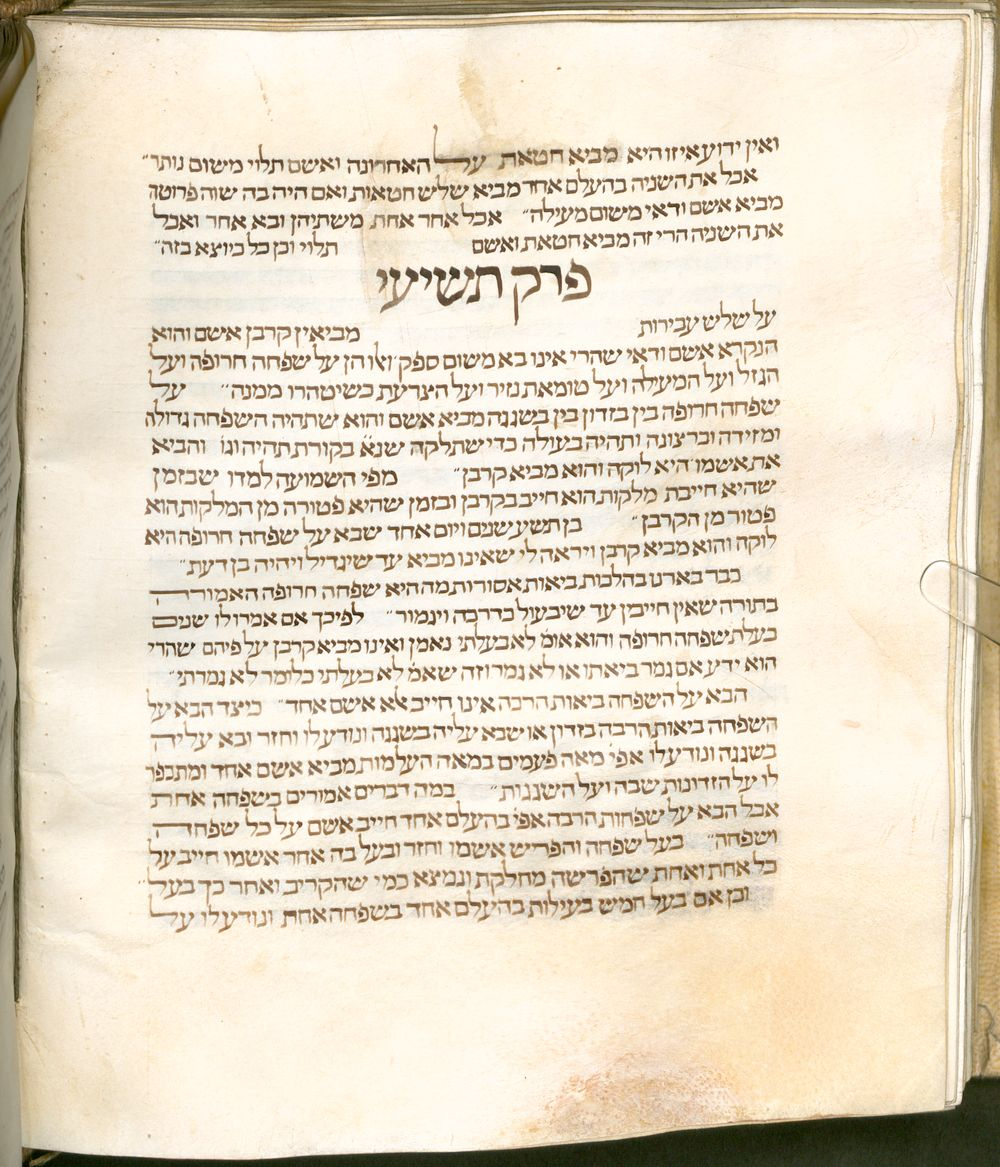 ואין ידוע איזו היא מביא חטאת על האחרונה ואשם תלוי משום נותר״
אכל את השניה בהעלם אחד מביא שלש חטאות ואם היה בה שוה פרוטה
מביא אשם ודאי משום מעילה״ אכל אחר אחת משתיהן ובא אחר ואכל
את השניה הרי זה מביא חטאת ואשם תלוי וכן כל כיוצא בזה״
פרק תשיעי
על שלש עבירות מביאין קרבן אשם והוא
הנקרא אשם ודאי שהרי אינו בא משום ספק ואו הן על שפחה חרופה ועל
הגזל ועל המעילה ועל טומאת נזיר ועל הצרעת כשיטהרו ממנה״ על
שפחה חרופה בין בזדון בין בשגגה מביא אשם והוא שתהיה השפחה גדולה
ומזידה וברצונה ותהיה בעולה כדי שתלקה שנ׳א בקורת תהיה וגו׳ והביא
את אשמו היא לוקה והוא מביא קרבן״ מפי השמועה למדו שבזמן
שהיא חייבת מלקות הוא חייב בקרבן ובזמן שהיא פטורה מן המלקות הוא
פטור מן הקרבן״ בן תשע שנים ויום אחד שבא על שפחה חרופה היא
לוקה והוא מביא קרבן ויראה לי שאינו מביא עד שיגדיל ויהיה בן דעת״
כבר בארנו בהלכות ביאות אסורות מה היא שפחה חרופה האמורה
בתורה שאין חייבין עד שיבעול כדרכה ויגמור״ לפיכך אם אמרו לו שנים
בעלת שפחה חרופה והוא אומ׳ לא בעלתי נאמן ואינו מביא קרבן על פיהם שהרי
הוא ידע אם גמר ביאתו או לא גמר וזה שאמ׳ לא בעלתי כלומר לא גמרתי״
הבא על השפחה ביאות הרבה אינו חייב אלא אשם אחד״ כיצד הבא על
השפחה ביאות הרבה בזדון או שבא עליה בשגגה ונודע לו וחזר ובא עליה
בשגגה ונודע לו אפי׳ מאה פעמים במאה העלמות מביא אשם אחד ומתכפר
לו על הזדונות שבה ועל השגגות״ במה דברים אמורים בשפחה אחת
אבל הבא על שפחות הרבה אפי׳ בהעלם אחד חייב אשם על כל שפחה
ושפחה״ בעל שפחה והפריש אשמו וחזר ובעל בה אחר אשמו חייב על
כל אחת ואחת שהפרשה מחלקת ונמצא כמי שהקריב ואחר כך בעל״
וכן אם בעל חמש בעילות בהעלם אחד בשפחה אחת ונודע לו על